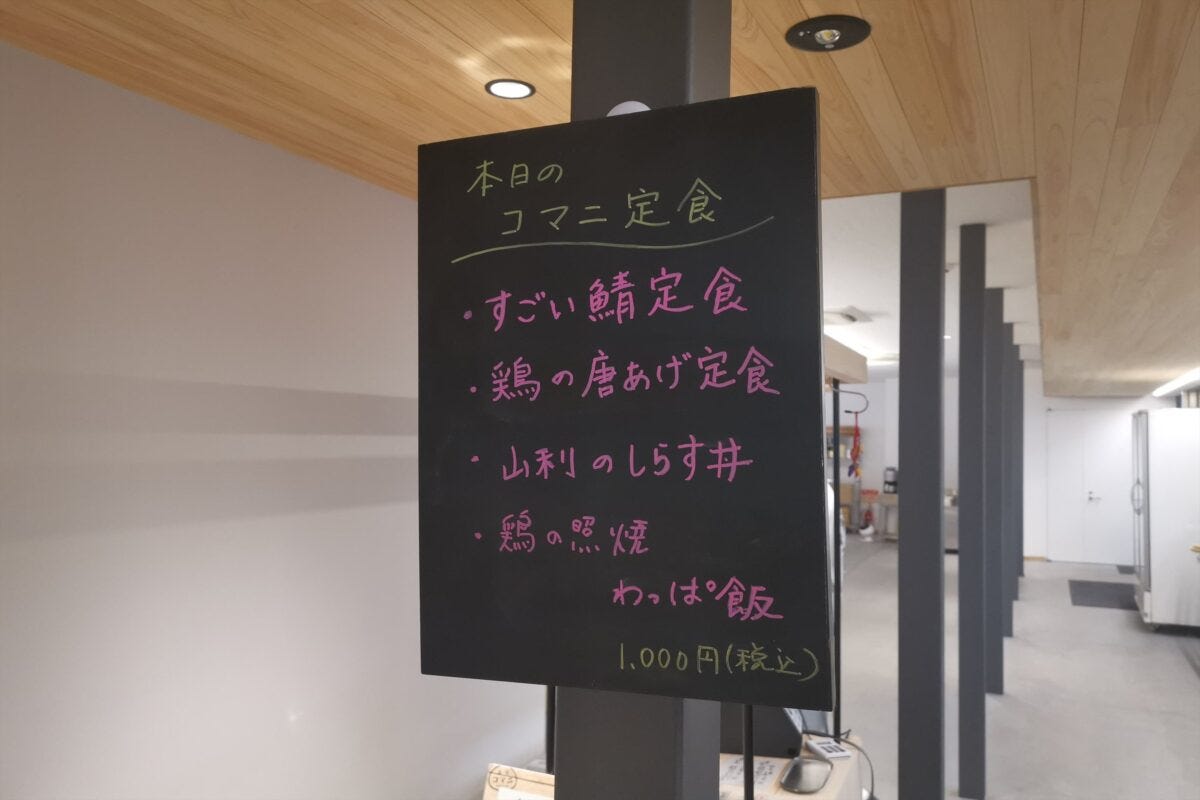 本日の
コマニ定食
・すごい鯖定食
・鶏の唐あげ定食
・山利のしらす丼
・鶏の照焼
わっぱ飯
1.000円(税込)